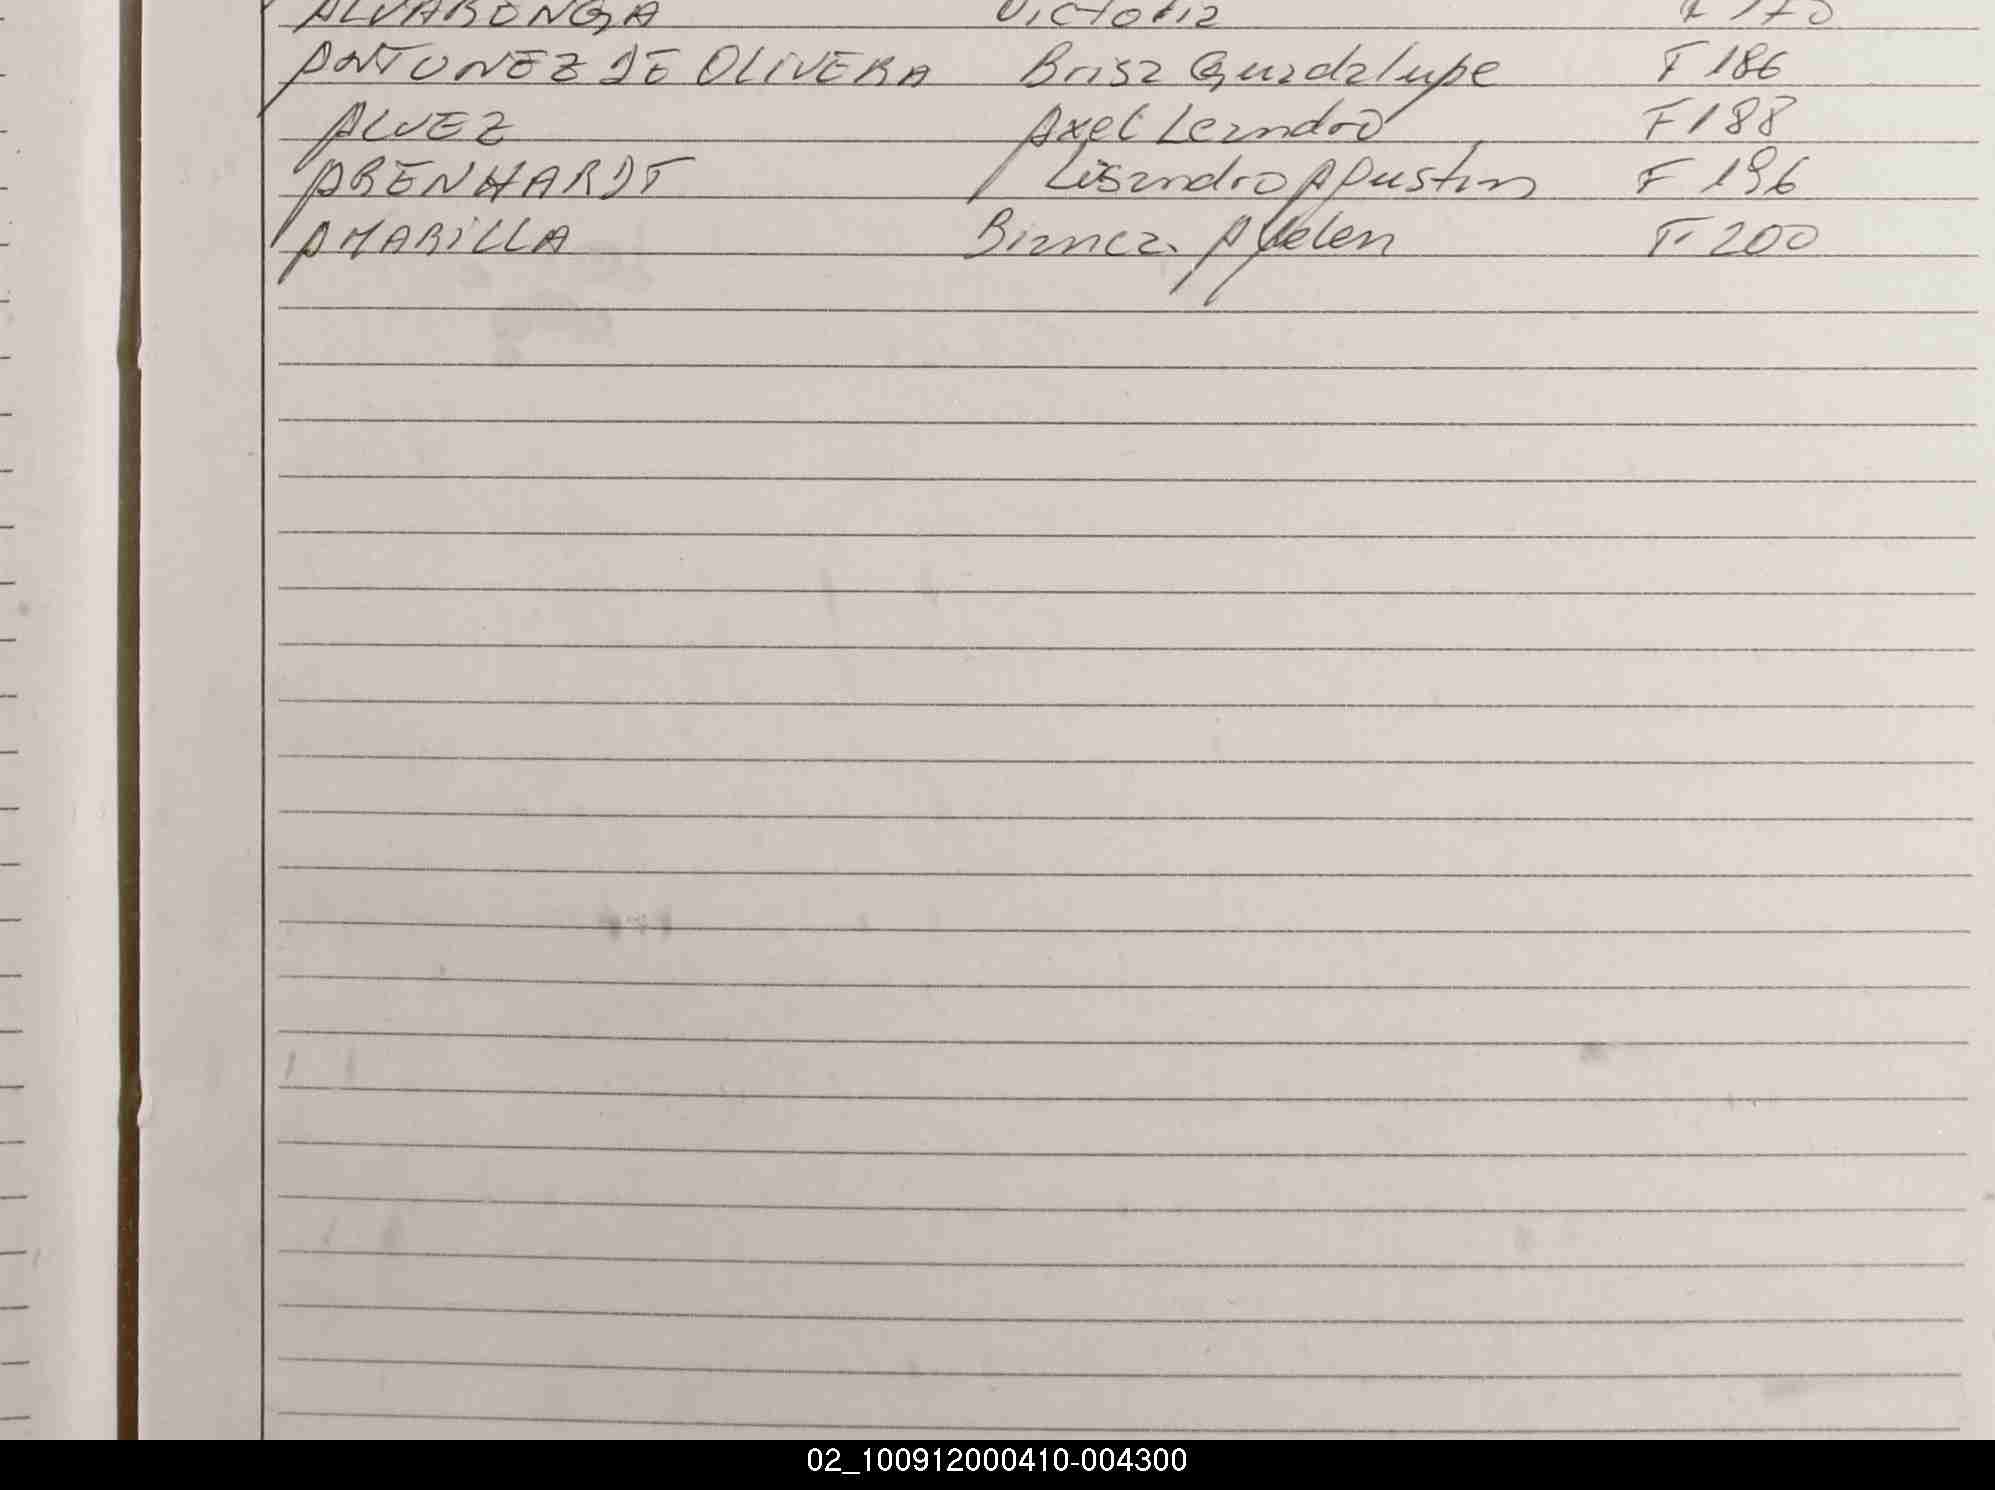 ALVARENGA Victoria F 170
ANTUNEZ DE OLIVERA Brisa Guadalupe F 186
ALVEZ Axel Leandro F 188
ARENHARDT Lisandro Agustin F 196
AMARILLA Bianca Ayelen F 200
02_100912000410-004300